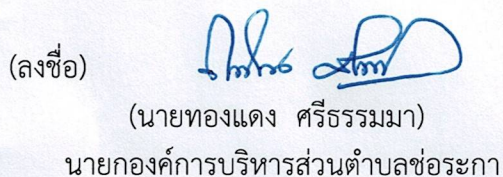 (ลงชื่อ)
(นายทองแดง ศรีธรรมมา)
นายกองค์การบริหารส่วนตำบลช่อระกา